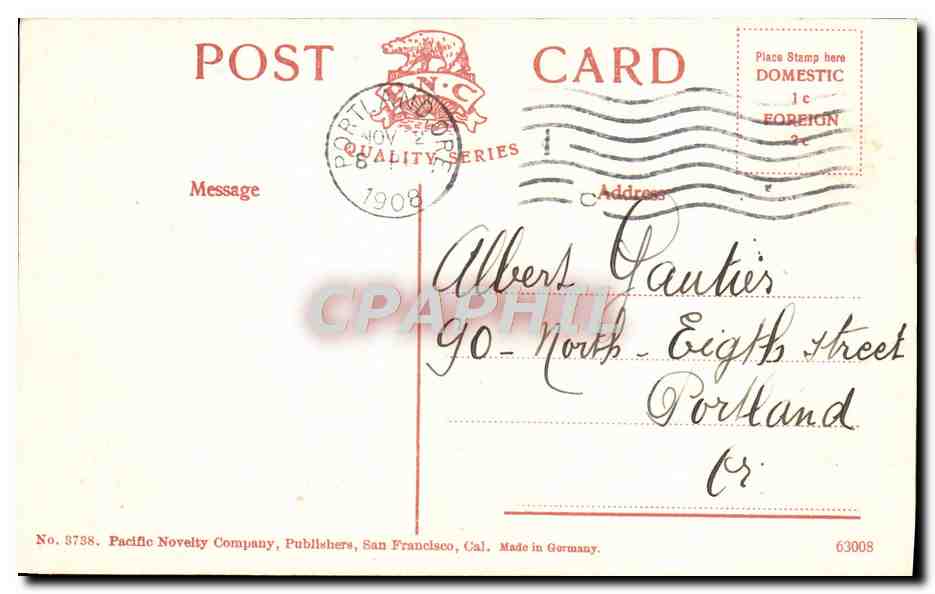 POST CARD
P·N·C
QUALITY SERIES
Place Stamp here
DOMESTIC
1c
FOREIGN
2c
PORTLAND ORE.
NOV 2
8
1908
Message
Address
Albert Gautier
90 - North - Eigth street
Portland
Or.
CPAPHIL
No. 3738. Pacific Novelty Company, Publishers, San Francisco, Cal. Made in Germany.
63008